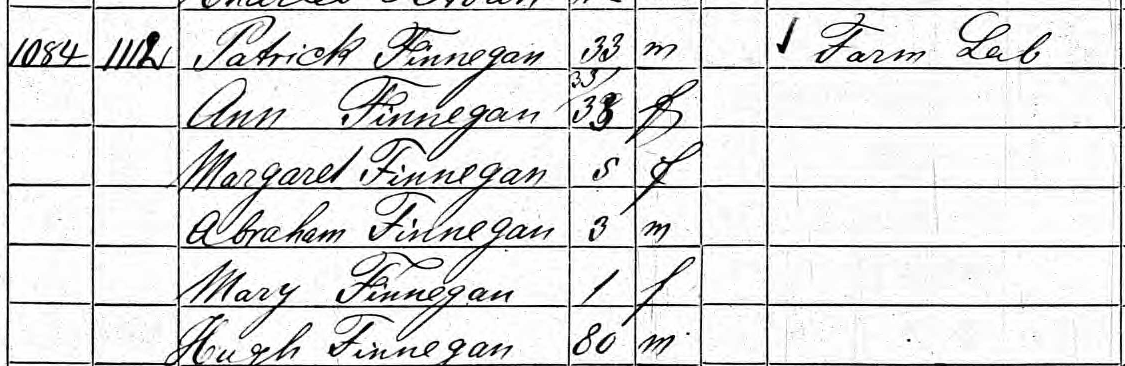 1084 1112 Patrick Finnegan 33 m Farm Lab
33
Ann Finnegan 33 f
Margaret Finnegan 5 f
Abraham Finnegan 3 m
Mary Finnegan 1 f
Hugh Finnegan 80 m